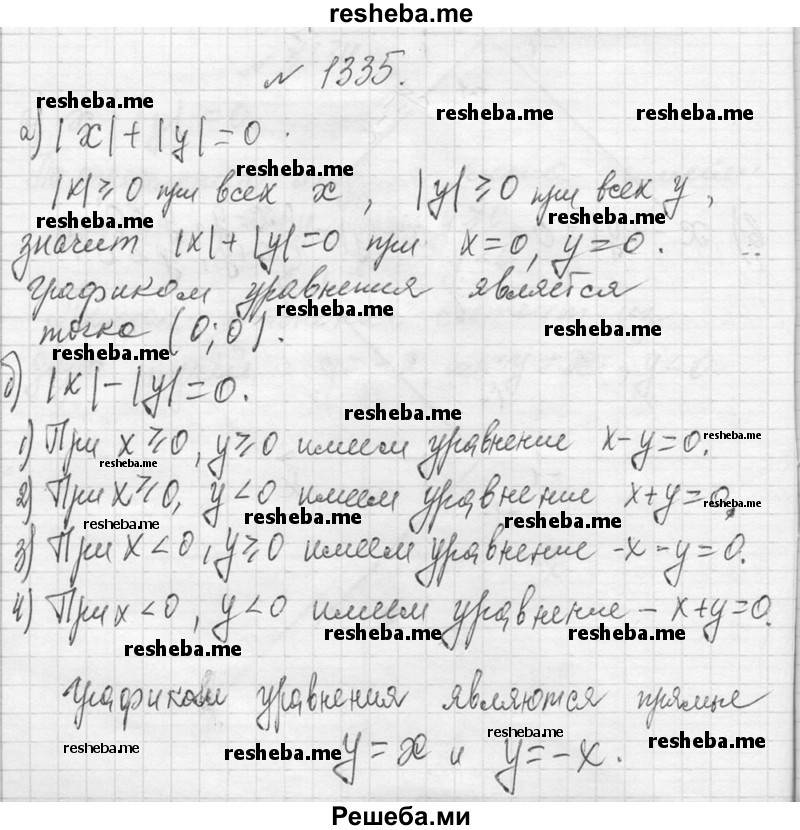 resheba.me
№ 1335.
resheba.me resheba.me resheba.me
а) |x|+|y|=0.
resheba.me
|x|⩾0 при всех x, |y|⩾0 при всех y,
resheba.me resheba.me
значит |x|+|y|=0 при x=0, y=0.
графиком уравнения является
resheba.me
точка (0;0).
resheba.me
resheba.me
б) |x|-|y|=0.
resheba.me
1) При x⩾0, y⩾0 имеем уравнение x-y=0.
resheba.me
resheba.me
2) При x⩾0, y<0 имеем уравнение x+y=0.
resheba.me
resheba.me resheba.me resheba.me
3) При x<0, y⩾0 имеем уравнение -x-y=0.
4) При x<0, y<0 имеем уравнение -x+y=0.
resheba.me resheba.me resheba.me
Графиком уравнения являются прямые
y=x и y=-x.
resheba.me resheba.me resheba.me resheba.me
Решеба.ми